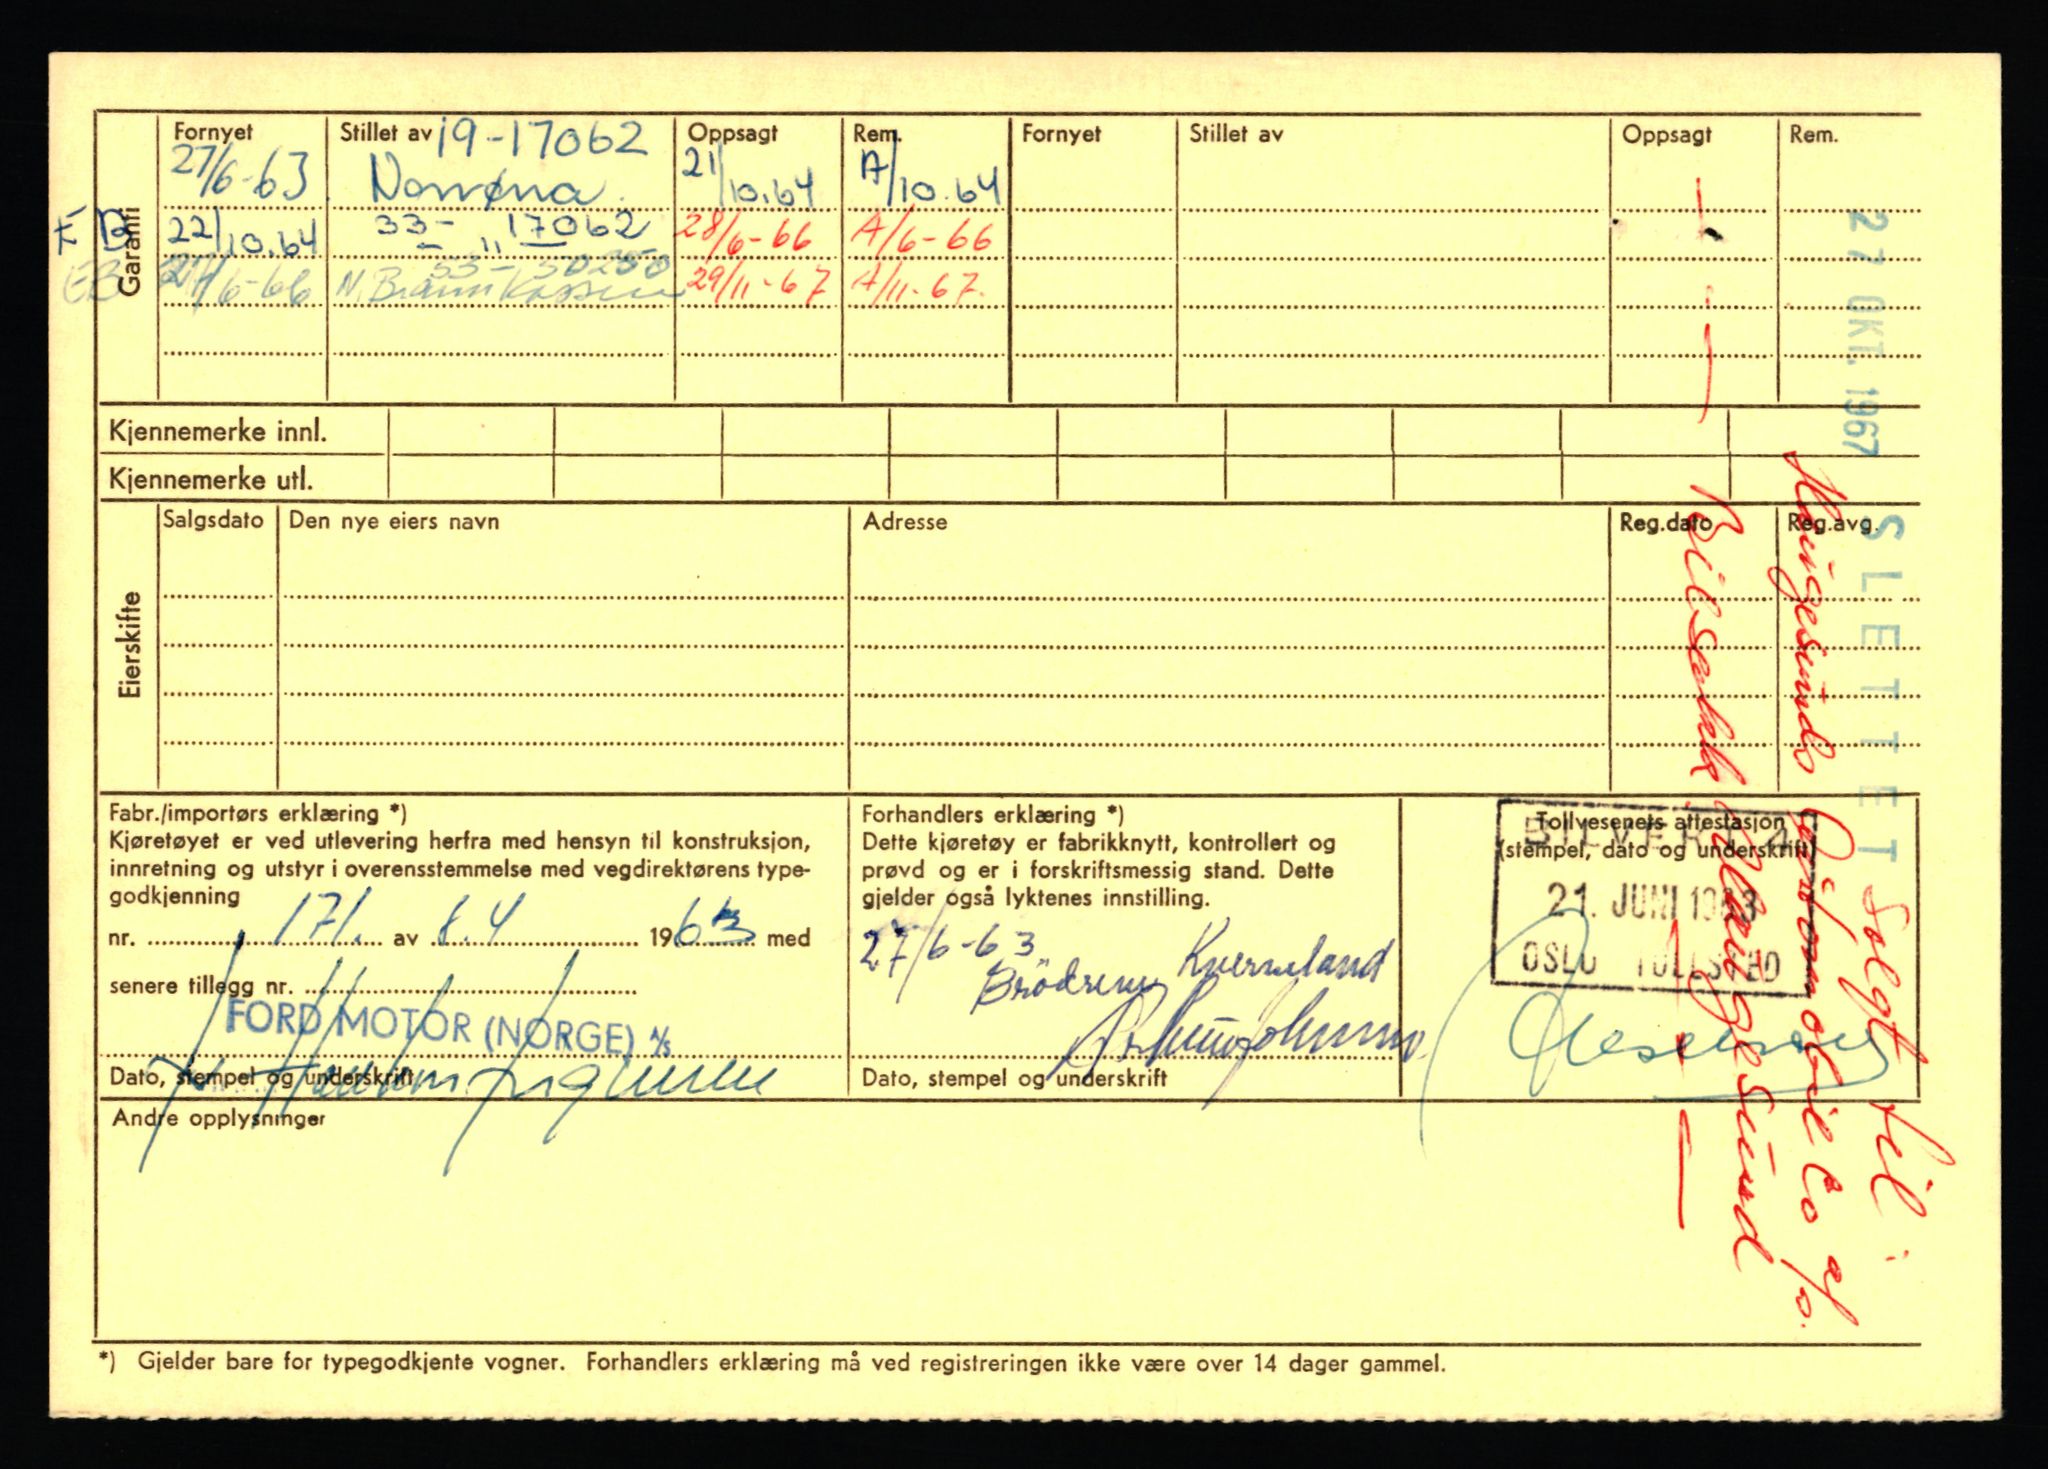 Garanti
Fornyet Stillet av Oppsagt Rem. Fornyet Stillet av Oppsagt Rem.
19-17062
27/6-63 Norrøna 21/10.64 A/10.64
EB 22/10.64 33- " 17062 28/6-66 A/6-66
33-50250
EB 27/6-66 N. Brann Kassen 29/11-67 A/11-67.
Kjennemerke innl.
Kjennemerke utl.
Eierskifte
Salgsdato Den nye eiers navn Adresse Reg.dato Reg.avg.
Fabr./importørs erklæring *)
Kjøretøyet er ved utlevering herfra med hensyn til konstruksjon,
innretning og utstyr i overensstemmelse med vegdirektørens type-
godkjenning
nr. 171. av 8.4 1963 med
senere tillegg nr.
FORD MOTOR (NORGE) A/S
Dato, stempel og underskrift
Forhandlers erklæring *)
Dette kjøretøy er fabrikknytt, kontrollert og
prøvd og er i forskriftsmessig stand. Dette
gjelder også lyktenes innstilling.
27/6-63
Brödrene Kverneland
Dato, stempel og underskrift
Tollvesenets attestasjon
(stempel, dato og underskrift)
21. JUNI 1963
OSLO TOLLSTED
Andre opplysninger
27 OKT. 1967 SLETTET
Solgt til:
Haugesunds Automobil Co a/s.
Bilsakk. Haugesund
*) Gjelder bare for typegodkjente vogner. Forhandlers erklæring må ved registreringen ikke være over 14 dager gammel.